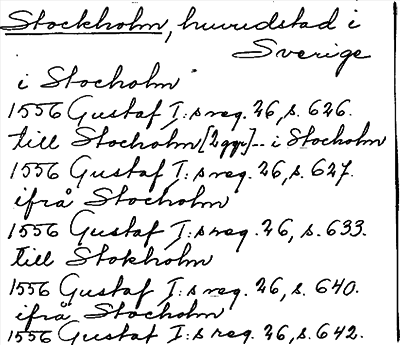 Stockholm, huvudstad i
Sverige
i Stocholm
1556 Gustaf I:s reg. 26, s. 626.
till Stocholm [2 ggr] -- i Stocholm
1556 Gustaf I:s reg. 26, s. 627.
ifrå Stocholm
1556 Gustaf I:s reg. 26, s. 633.
till Stokholm
1556 Gustaf I:s reg. 26, s. 640.
ifrå Stocholm
1556 Gustaf I:s reg. 26, s. 642.